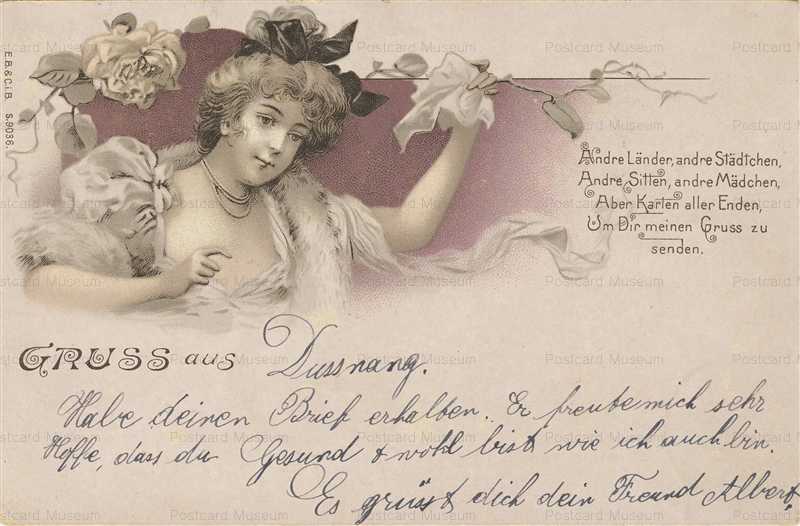 E.B.&C.i.B. S.9036.
Andre Länder, andre Städtchen,
Andre Sitten, andre Mädchen,
Aber Karten aller Enden,
Um Dir meinen Gruss zu
senden.
GRUSS aus Dussnang.
Habe deinen Brief erhalten. Er freute mich sehr
Hoffe, dass du Gesund & wohl bist wie ich auch bin.
Es grüsst dich dein Freund Albert.
Postcard Museum